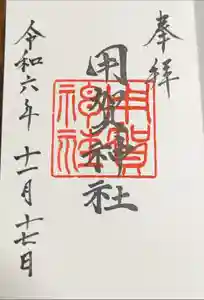 奉拝
用賀神社
用賀神社
令和六年 十一月 十七日